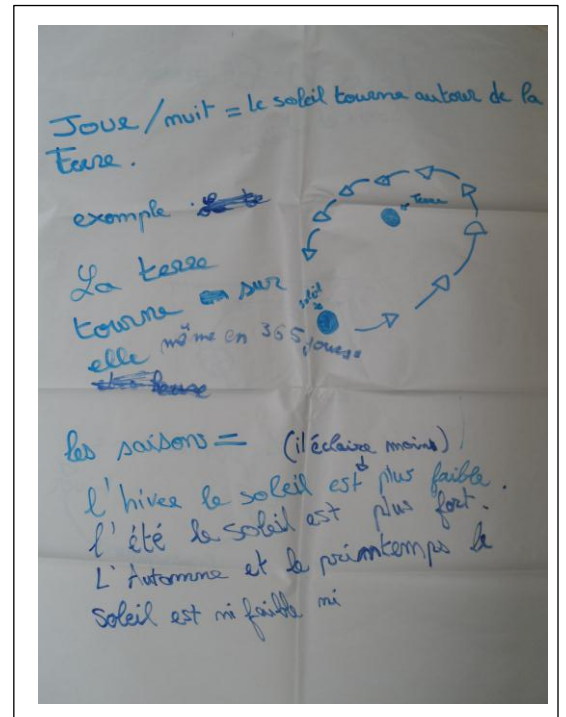 Jour/nuit = le soleil tourne autour de la
terre.
exemple :
Terre
La terre
tourne sur
soleil
elle même en 365 jours
les saisons = (il éclaire moins)
l'hiver le soleil est plus faible.
l'été le soleil est plus fort.
L'Automne et le primtemps le
soleil est ni faible ni